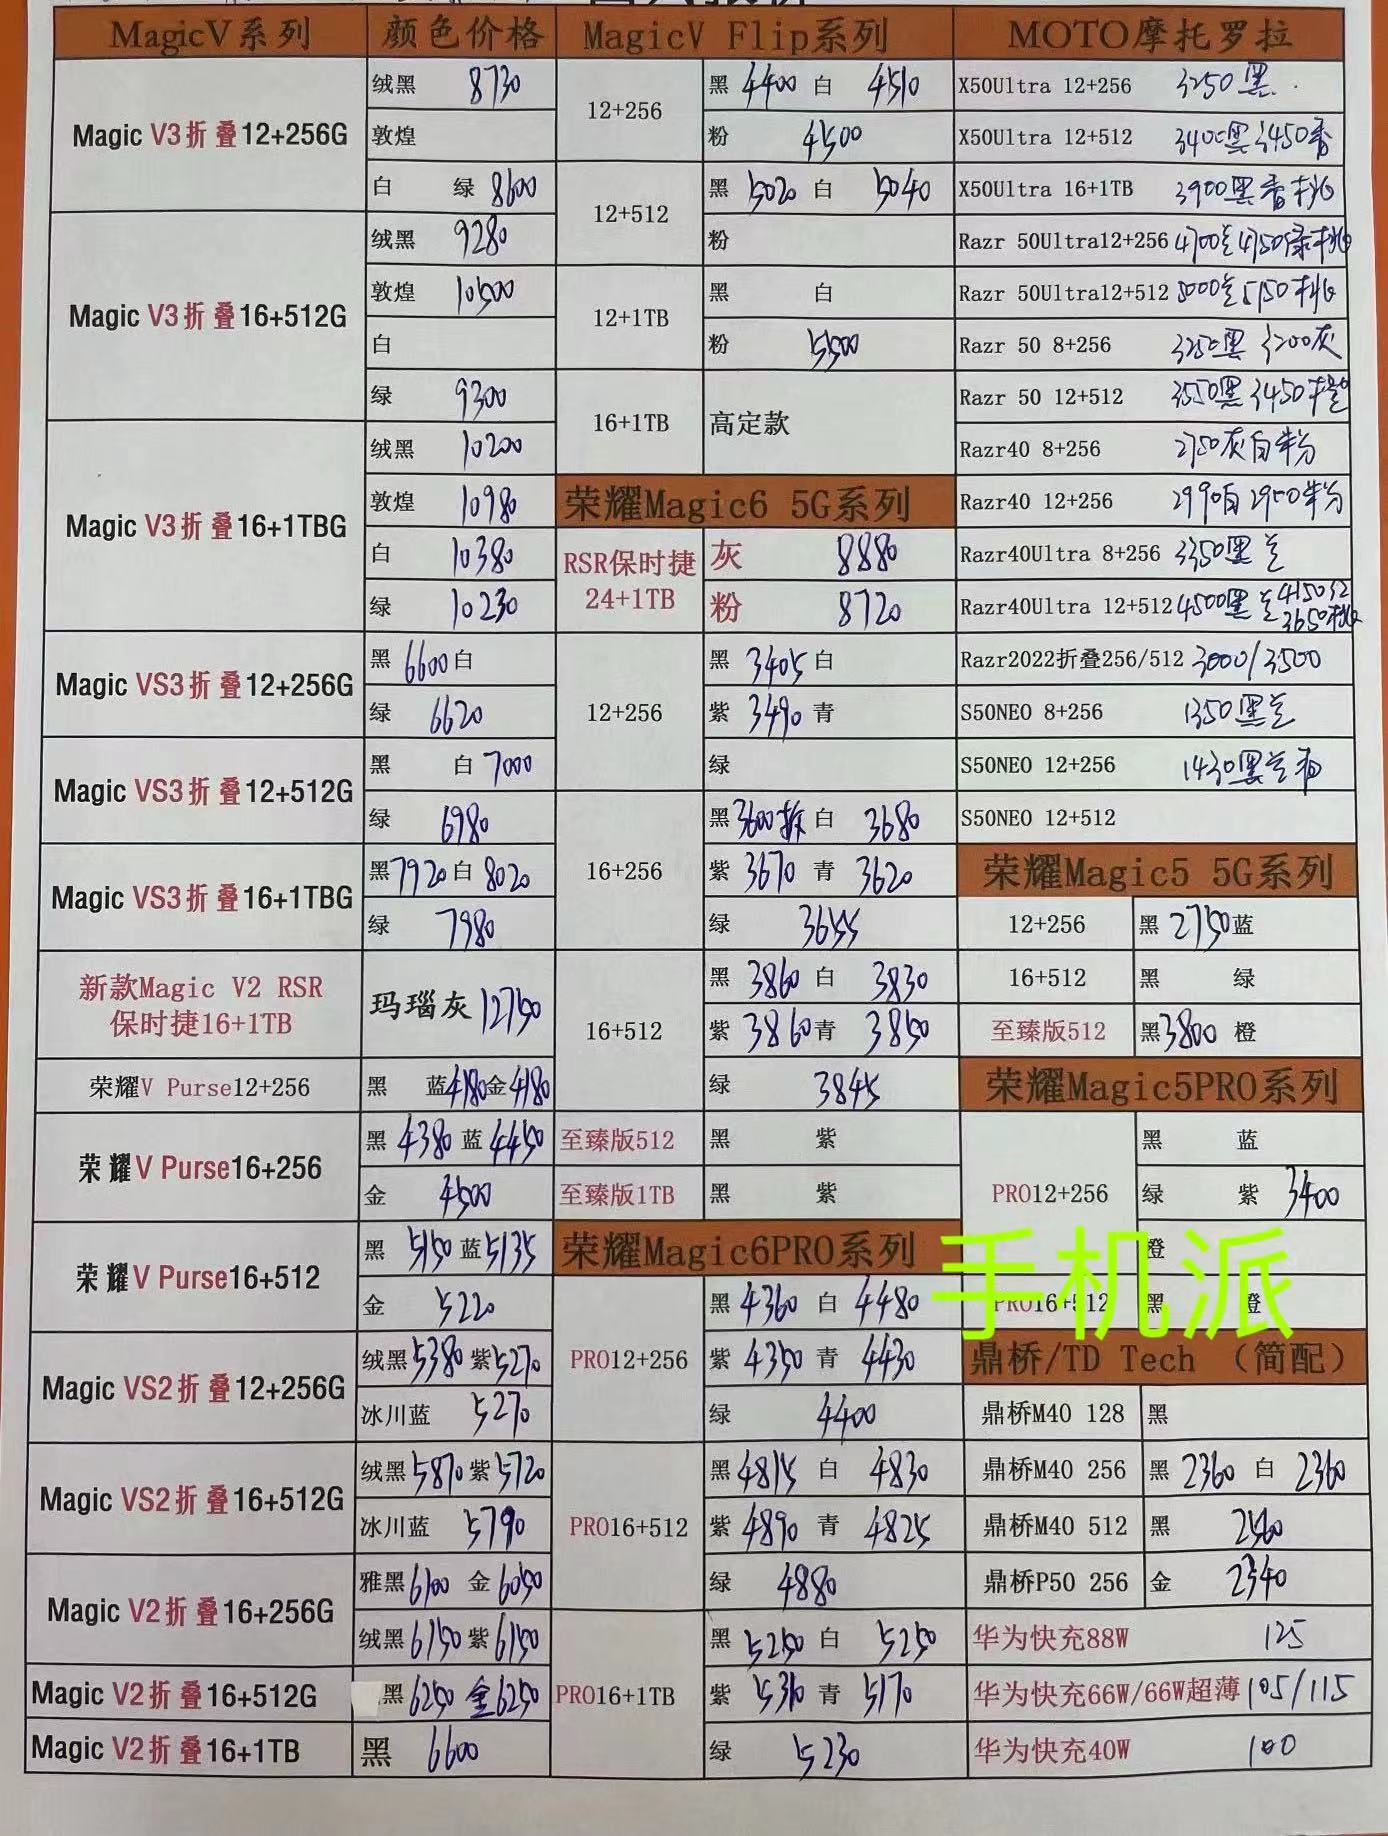 MagicV系列 颜色价格
Magic V3折叠12+256G
绒黑 8730
敦煌
白 绿 8600
Magic V3折叠16+512G
绒黑 9280
敦煌 10500
白
绿 9300
Magic V3折叠16+1TBG
绒黑 10200
敦煌 10980
白 10380
绿 10230
Magic VS3折叠12+256G
黑 6600 白
绿 6620
Magic VS3折叠12+512G
黑 白 7000
绿 6980
Magic VS3折叠16+1TBG
黑 7920 白 8020
绿 7980
新款Magic V2 RSR
保时捷16+1TB
玛瑙灰 12750
荣耀V Purse12+256
黑 蓝4180金4180
荣耀V Purse16+256
黑 4380 蓝 4450
金 4500
荣耀V Purse16+512
黑 5150 蓝 5135
金 5220
Magic VS2折叠12+256G
绒黑 5380 紫 5270
冰川蓝 5270
Magic VS2折叠16+512G
绒黑 5870 紫 5720
冰川蓝 5790
Magic V2折叠16+256G
雅黑 6100 金 6050
绒黑 6150 紫 6150
Magic V2折叠16+512G
黑 6250 金 6250
Magic V2折叠16+1TB
黑 6600
MagicV Flip系列
12+256
黑 4400 白 4510
粉 4500
12+512
黑 5020 白 5040
粉
12+1TB
黑 白
粉 5500
16+1TB 高定款
荣耀Magic6 5G系列
RSR保时捷
24+1TB
灰 8880
粉 8720
12+256
黑 3405 白
紫 3490 青
绿
16+256
黑 3600拆 白 3680
紫 3670 青 3620
绿 3655
16+512
黑 3860 白 3830
紫 3860 青 3850
绿 3845
至臻版512 黑 紫
至臻版1TB 黑 紫
荣耀Magic6PRO系列
PRO12+256
黑 4360 白 4480
紫 4350 青 4430
绿 4400
PRO16+512
黑 4815 白 4830
紫 4890 青 4825
绿 4880
PRO16+1TB
黑 5250 白 5250
紫 5310 青 5170
绿 5230
MOTO摩托罗拉
X50Ultra 12+256 3250黑
X50Ultra 12+512 3400黑 3450杏
X50Ultra 16+1TB 3900黑杏桃
Razr 50Ultra12+256 4700兰4750绿桃
Razr 50Ultra12+512 5000兰5150桃
Razr 50 8+256 3250黑 3200灰
Razr 50 12+512 3550黑 3450橙
Razr40 8+256 2750灰白粉
Razr40 12+256 2990白 2950粉
Razr40Ultra 8+256 3350黑兰
Razr40Ultra 12+512 4500黑兰 4150红
3650桃
Razr2022折叠256/512 3000/3500
S50NEO 8+256 1350黑兰
S50NEO 12+256 1430黑兰
S50NEO 12+512
荣耀Magic5 5G系列
12+256 黑 2750 蓝
16+512 黑 绿
至臻版512 黑 3800 橙
荣耀Magic5PRO系列
PRO12+256
黑 蓝
绿 紫 3400
橙
PRO16+512 黑 橙
手机派
鼎桥/TD Tech （简配）
鼎桥M40 128 黑
鼎桥M40 256 黑 2360 白 2360
鼎桥M40 512 黑 2560
鼎桥P50 256 金 2340
华为快充88W 125
华为快充66W/66W超薄 105/115
华为快充40W 100